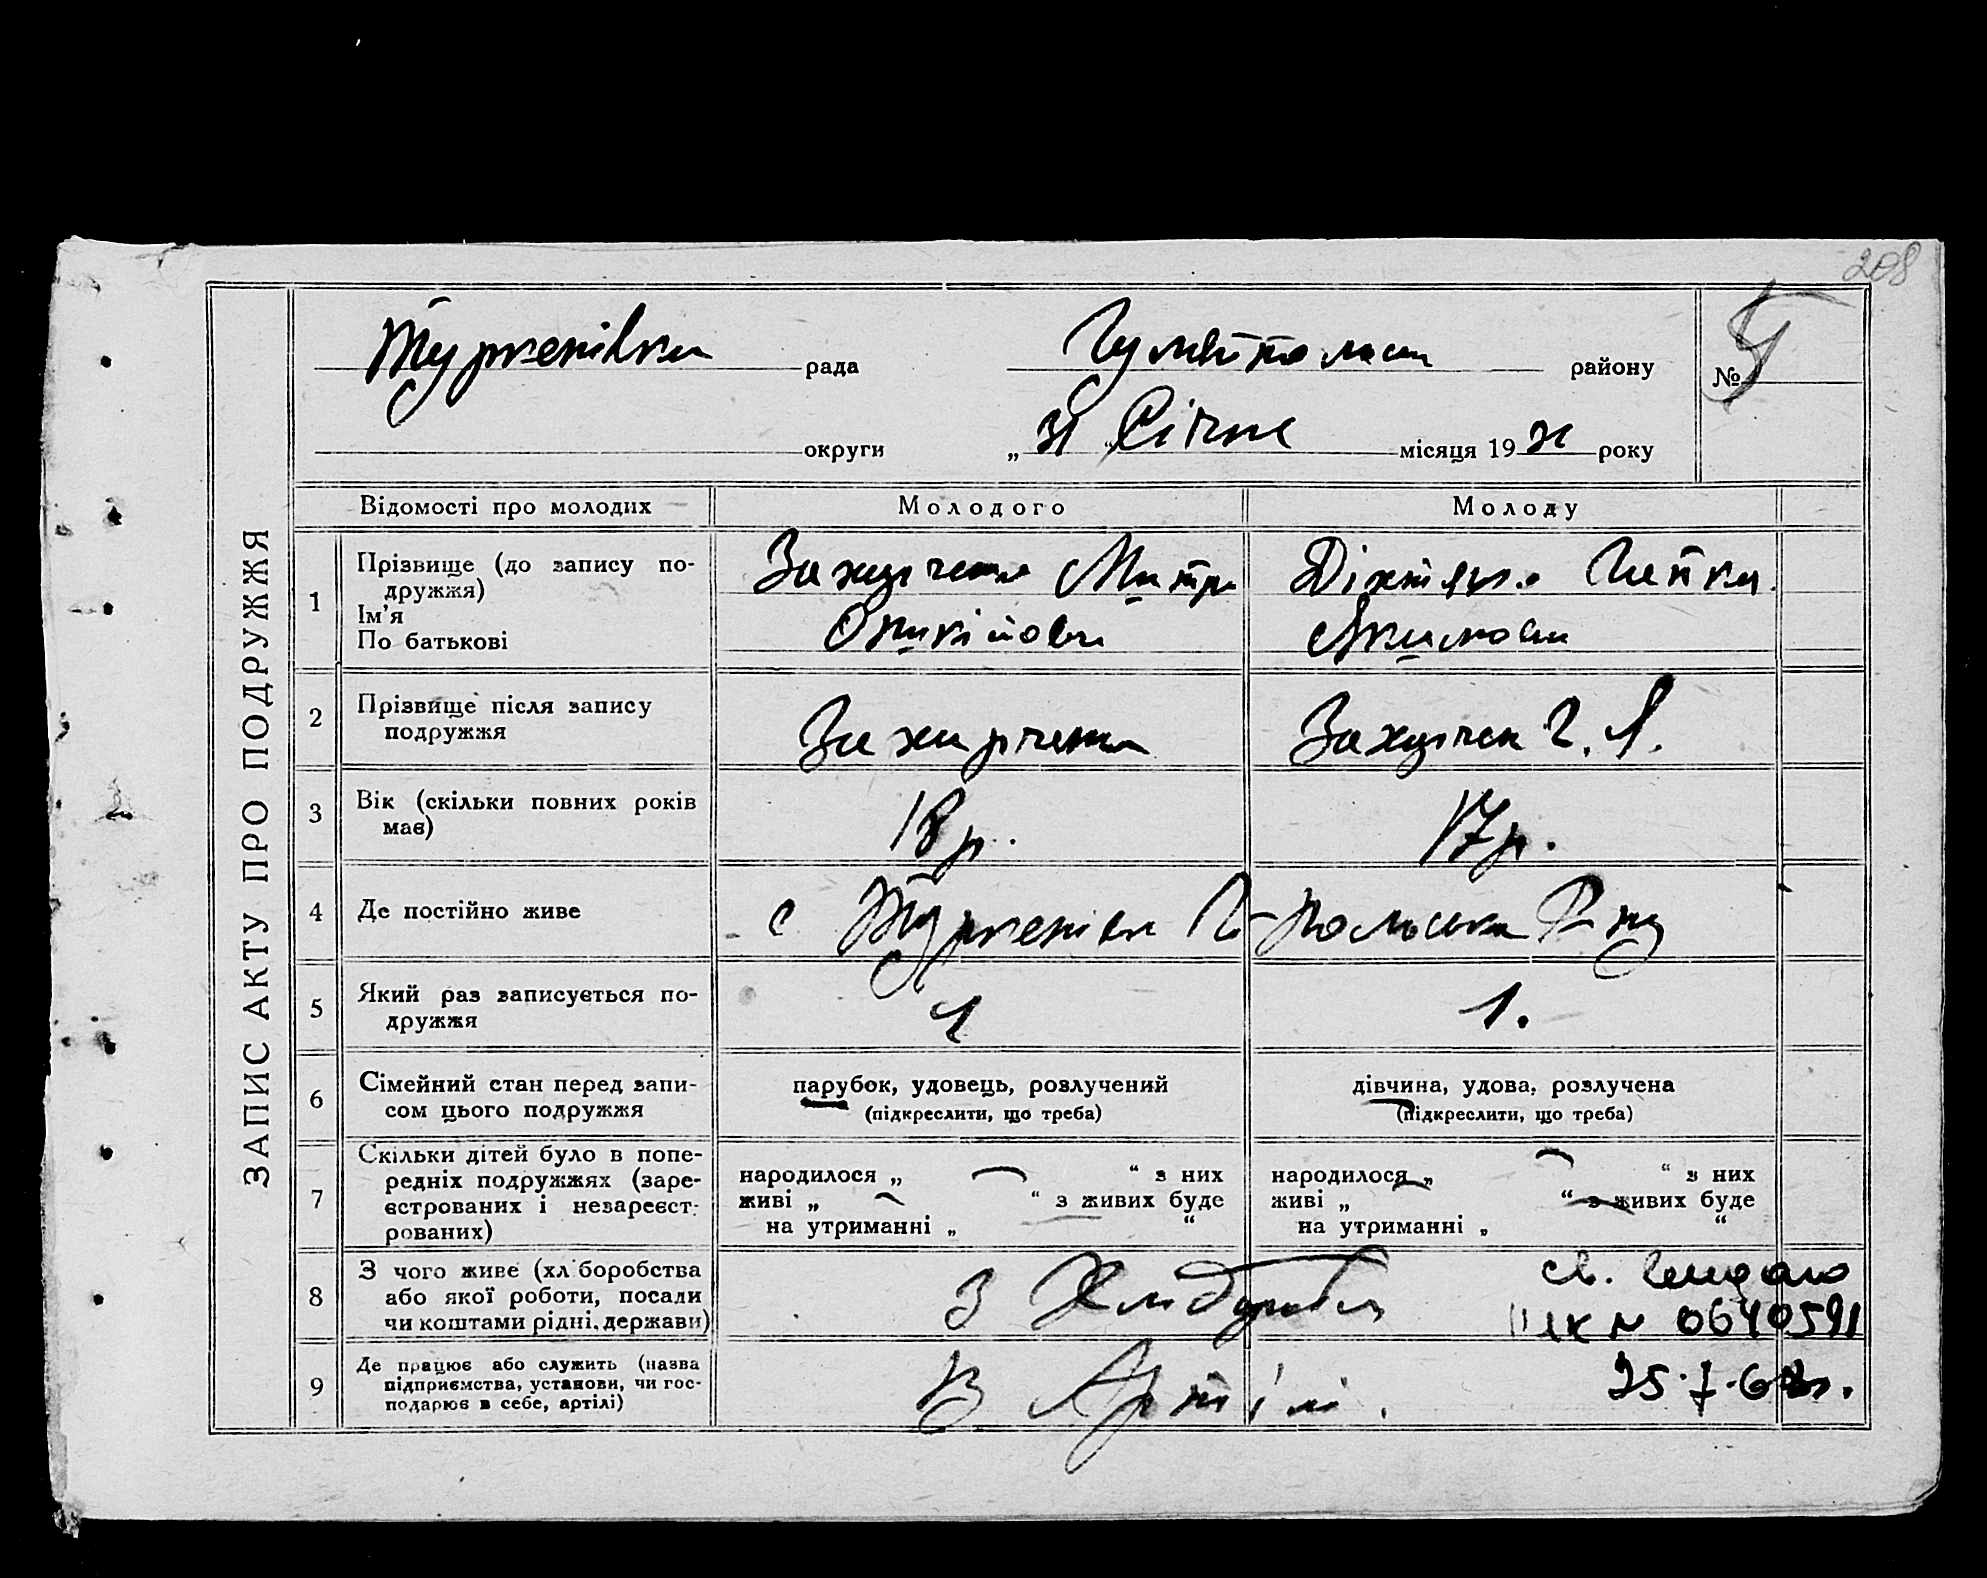 208
ЗАПИС АКТУ ПРО ПОДРУЖЖЯ
Туркенівка рада
району
№ 5
округи „31 “ Січня місяця 1931 року
Відомості про молодих Молодого Молоду
1 Прізвище (до запису по-
дружжя)
Ім'я
По батькові
Митро
Якимовна
2 Прізвище після запису
подружжя
3 Вік (скільки повних років
має) 18 р. 17 р.
4 Де постійно живе с Туркенівка Г-Польська Р-ну
5 Який раз записується по-
дружжя 1 1.
6 Сімейний стан перед запи-
сом цього подружжя
парубок, удовець, розлучений
(підкреслити, що треба)
дівчина, удова, розлучена
(підкреслити, що треба)
7 Скільки дітей було в попе-
редніх подружжях (заре-
єстрованих і незареєст-
рованих)
народилося „ “ з них
живі „ “ з живих буде
на утриманні „ “
народилося „ “ з них
живі „ “ з живих буде
на утриманні „ “
8 З чого живе (хліборобства
або якої роботи, посади
чи коштами рідні, держави)
З Хліборобства
св.
ІІ ЖК № 0640591
9 Де працює або служить (назва
підприємства, установи, чи гос-
подарює в себе, артілі)
В Артілі.